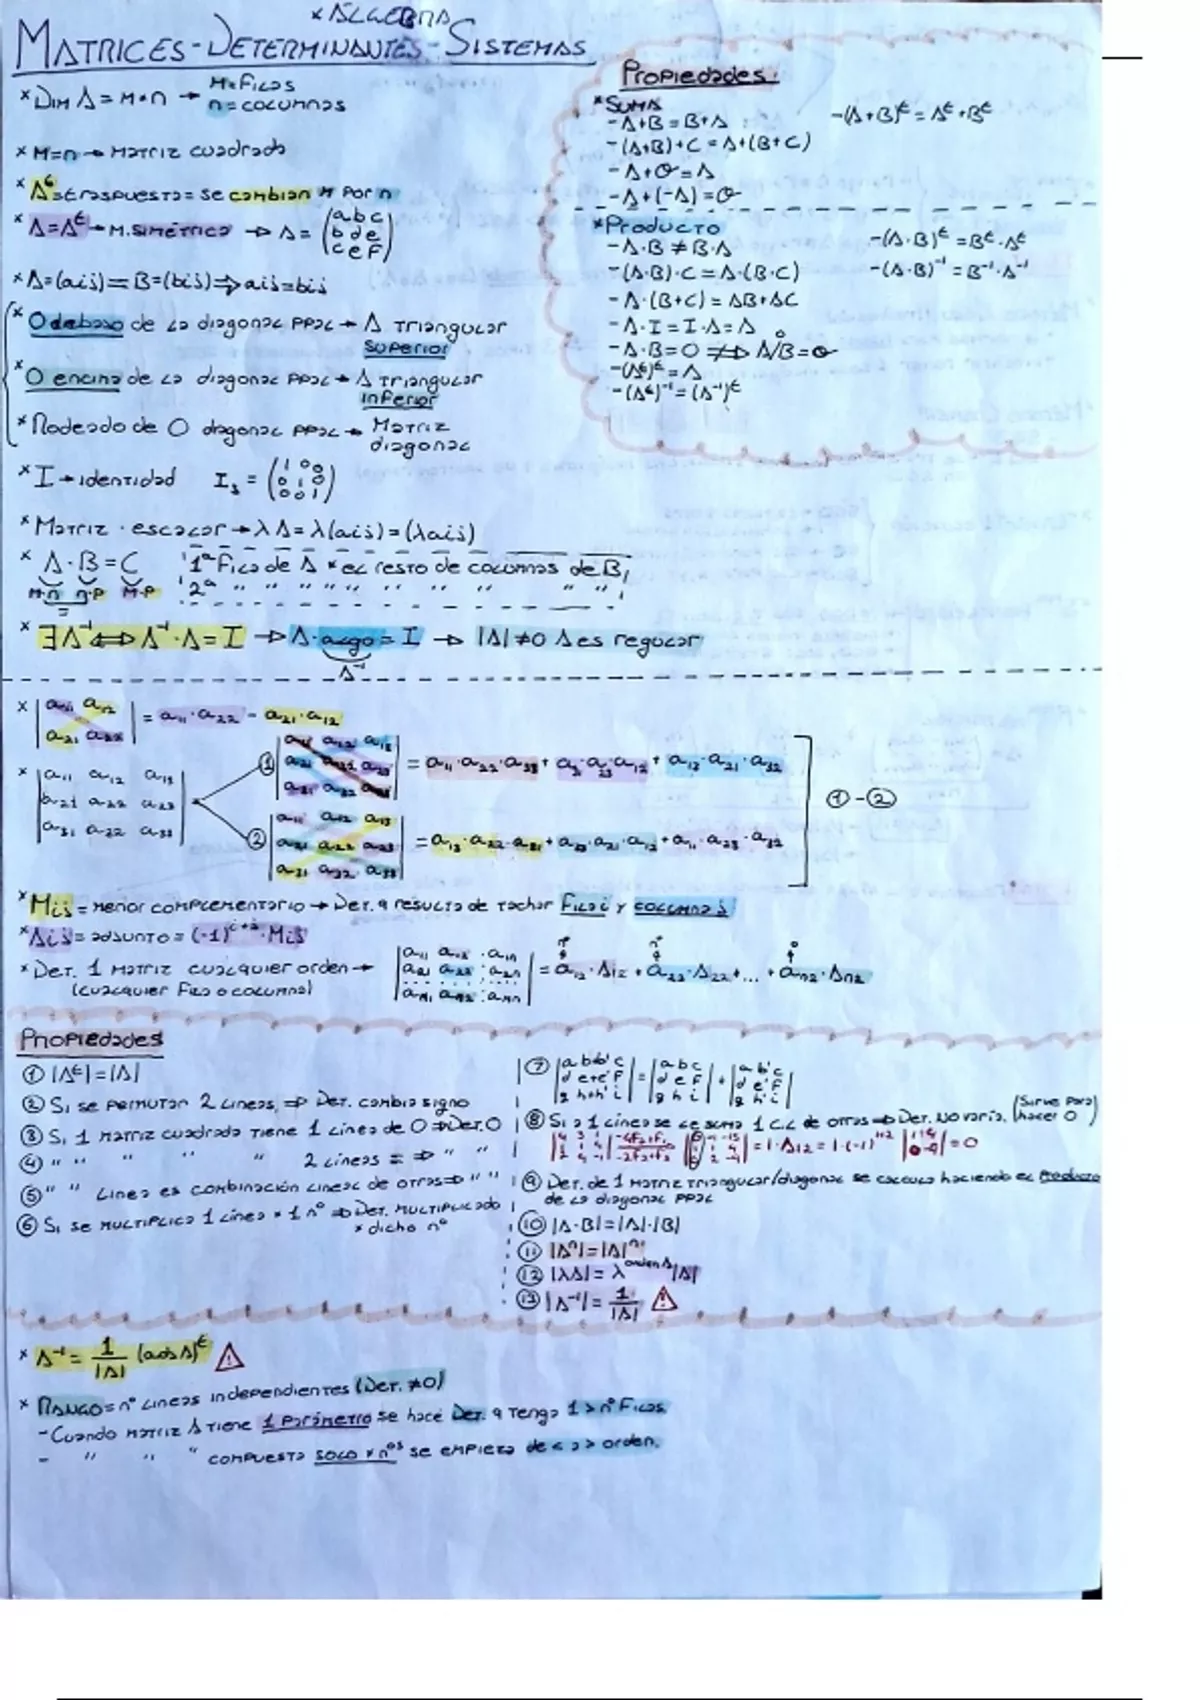 * ÁLGEBRA
MATRICES-DETERMINANTES-SISTEMAS
* DIM A = m·n → m = filas
n = columnas
* m=n → matriz cuadrada
* Aᵗ = traspuesta = se cambian m por n
* A=Aᵗ → M. SIMÉTRICA → A = (a b c
b d e
c e f)
* A=(aij) = B=(bij) ⇒ aij=bij
* 0 debajo de la diagonal ppal → A triangular
superior
* 0 encima de la diagonal ppal → A triangular
inferior
* Rodeado de 0 diagonal ppal → Matriz
diagonal
* I → identidad I₃ = (1 0 0
0 1 0
0 0 1)
* Matriz · escalar → λA = λ(aij) = (λaij)
* A · B = C 1ª fila de A * el resto de columnas de B,
m·n n·p m·p 2ª " " " " " " " " " "
=
* ∃A⁻¹ ⇔ A⁻¹·A = I → A·algo = I → |A|≠0 A es regular
A⁻¹
Propiedades:
* SUMA
- A+B = B+A
- (A+B)ᵗ = Aᵗ+Bᵗ
- (A+B)+C = A+(B+C)
- A+O = A
- A+(-A) = O
* Producto
- A·B ≠ B·A
- (A·B)ᵗ = Bᵗ·Aᵗ
- (A·B)·C = A·(B·C)
- (A·B)⁻¹ = B⁻¹·A⁻¹
- A·(B+C) = AB+AC
- A·I = I·A = A
- A·B=O ⇏ A/B=O
- (Aᵗ)ᵗ = A
- (Aᵗ)⁻¹ = (A⁻¹)ᵗ
* |a₁₁ a₁₂
a₂₁ a₂₂| = a₁₁·a₂₂ - a₂₁·a₁₂
* |a₁₁ a₁₂ a₁₃
a₂₁ a₂₂ a₂₃
a₃₁ a₃₂ a₃₃|
① |a₁₁ a₁₂ a₁₃
a₂₁ a₂₂ a₂₃
a₃₁ a₃₂ a₃₃| = a₁₁·a₂₂·a₃₃ + a₃₁·a₂₃·a₁₂ + a₁₃·a₂₁·a₃₂
② |a₁₁ a₁₂ a₁₃
a₂₁ a₂₂ a₂₃
a₃₁ a₃₂ a₃₃| = a₁₃·a₂₂·a₃₁ + a₃₃·a₂₁·a₁₂ + a₁₁·a₂₃·a₃₂
① - ②
* Mij = menor complementario → Det. q resulta de tachar fila i y columna j
* Aij = adjunto = (-1)ⁱ⁺ʲ·Mij
* Det. 1 matriz cualquier orden →
(cualquier fila o columna)
|a₁₁ a₁₂ · a₁ₙ
a₂₁ a₂₂ : a₂ₙ
aₙ₁ aₙ₂ : aₙₙ| = a₁₂·A₁₂ + a₂₂·A₂₂ + ... + aₙ₂·Aₙ₂
Propiedades
① |Aᵗ|=|A|
② Si se permutan 2 líneas, ⇒ Det. cambia signo
③ Si 1 matriz cuadrada tiene 1 línea de 0 ⇒ Det. 0
④ " " " " 2 líneas = ⇒ " "
⑤ " " línea es combinación lineal de otras ⇒ " "
⑥ Si se multiplica 1 línea * 1 nº ⇒ Det. multiplicado
* dicho nº
⑦ |a b+b' c
d e+e' f
g h+h' i| = |a b c
d e f
g h i| + |a b' c
d e' f
g h' i|
⑧ Si a 1 línea se le suma 1 C.L de otras ⇒ Det. no varía. (Sirve para
hacer 0)
⑨ Det. de 1 matriz triangular/diagonal se calcula haciendo el producto
de la diagonal ppal
⑩ |A·B|=|A|·|B|
⑪ |Aⁿ|=|A|ⁿ
⑫ |λA| = λ^orden A |A|
⑬ |A⁻¹| = 1/|A| ⚠
* A⁻¹ = 1/|A| (adj A)ᵗ ⚠
* RANGO = nº líneas independientes (Det. ≠0)
- Cuando matriz A tiene 1 parámetro se hace Det. q tenga 1 > nº filas.
- " " " compuesta solo * nºs se empieza de < a > orden.